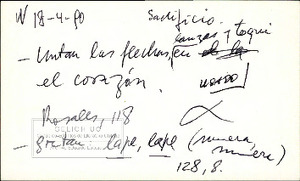 18-4-90
Sacrificio.
lanzas y toqui
- Untan las flechas, en
el corazón.
Rosales, 118
- gritan: lape, lape (muera,
muera)
128, 8.